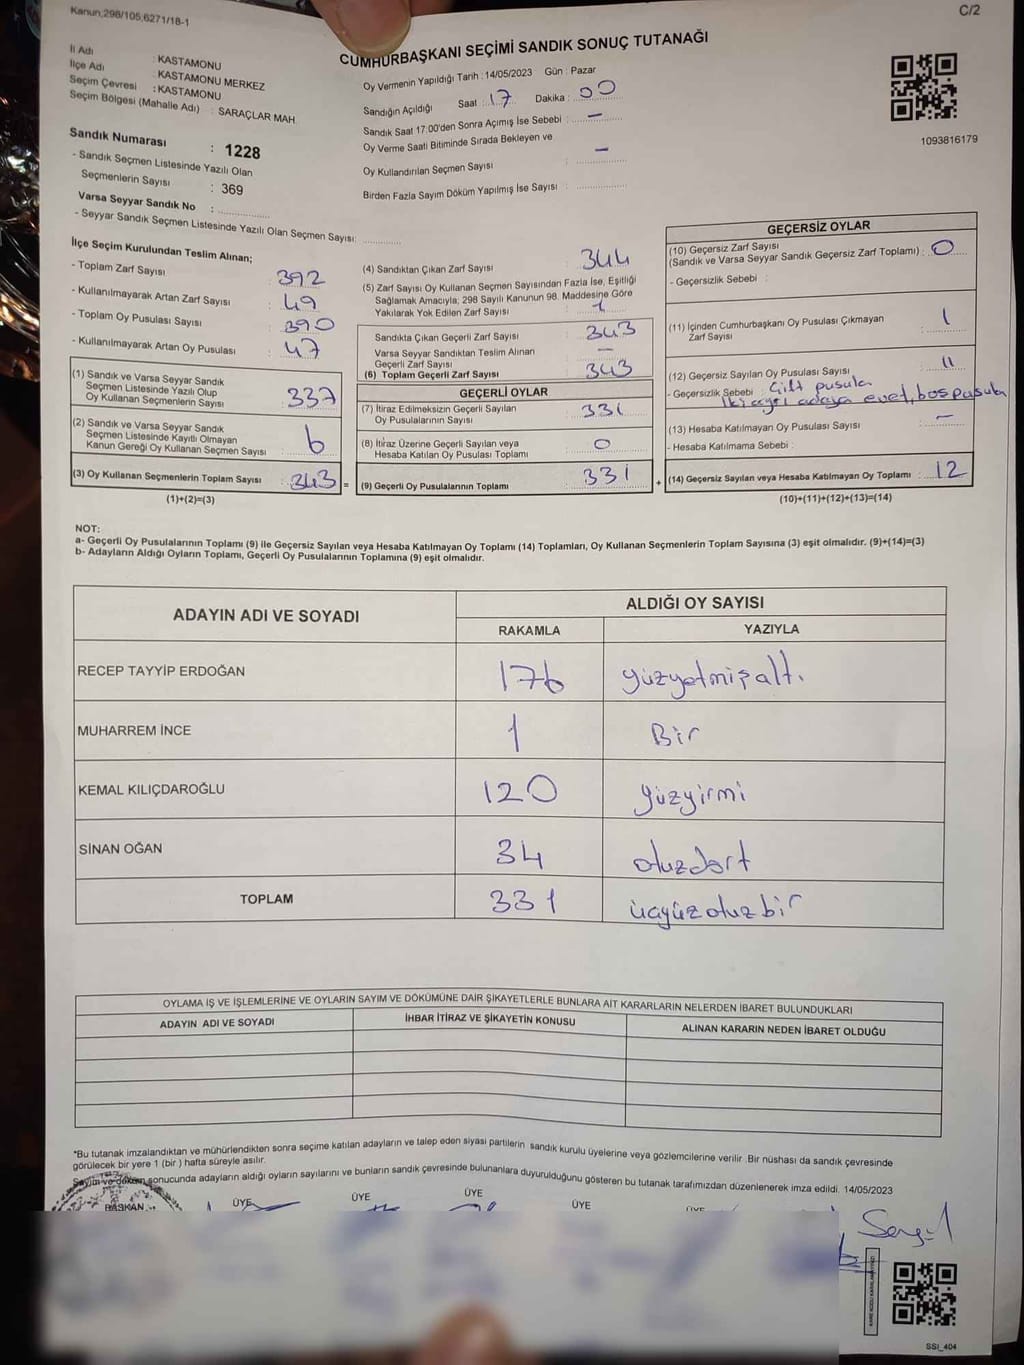 Kanun,298/105,6271/18-1
C/2
CUMHURBAŞKANI SEÇİMİ SANDIK SONUÇ TUTANAĞI
İl Adı : KASTAMONU
İlçe Adı : KASTAMONU MERKEZ
Seçim Çevresi : KASTAMONU
Seçim Bölgesi (Mahalle Adı) : SARAÇLAR MAH
Sandık Numarası : 1228
- Sandık Seçmen Listesinde Yazılı Olan
Seçmenlerin Sayısı : 369
Varsa Seyyar Sandık No :
- Seyyar Sandık Seçmen Listesinde Yazılı Olan Seçmen Sayısı:
Oy Vermenin Yapıldığı Tarih : 14/05/2023 Gün : Pazar
Sandığın Açıldığı Saat : 17 Dakika : 00
Sandık Saat 17:00'den Sonra Açımış İse Sebebi : -
Oy Verme Saati Bitiminde Sırada Bekleyen ve
Oy Kullandırılan Seçmen Sayısı : -
Birden Fazla Sayım Döküm Yapılmış İse Sayısı :
1093816179
İlçe Seçim Kurulundan Teslim Alınan;
- Toplam Zarf Sayısı : 392
- Kullanılmayarak Artan Zarf Sayısı : 49
- Toplam Oy Pusulası Sayısı : 390
- Kullanılmayarak Artan Oy Pusulası : 47
(1) Sandık ve Varsa Seyyar Sandık
Seçmen Listesinde Yazılı Olup
Oy Kullanan Seçmenlerin Sayısı : 337
(2) Sandık ve Varsa Seyyar Sandık
Seçmen Listesinde Kayıtlı Olmayan
Kanun Gereği Oy Kullanan Seçmen Sayısı : 6
(3) Oy Kullanan Seçmenlerin Toplam Sayısı : 343 =
(1)+(2)=(3)
(4) Sandıktan Çıkan Zarf Sayısı : 344
(5) Zarf Sayısı Oy Kullanan Seçmen Sayısından Fazla İse, Eşitliği
Sağlamak Amacıyla; 298 Sayılı Kanunun 98. Maddesine Göre
Yakılarak Yok Edilen Zarf Sayısı : 1
Sandıkta Çıkan Geçerli Zarf Sayısı : 343
Varsa Seyyar Sandıktan Teslim Alınan
Geçerli Zarf Sayısı : -
(6) Toplam Geçerli Zarf Sayısı : 343
GEÇERLİ OYLAR
(7) İtiraz Edilmeksizin Geçerli Sayılan
Oy Pusulalarının Sayısı : 331
(8) İtiraz Üzerine Geçerli Sayılan veya
Hesaba Katılan Oy Pusulası Toplamı : 0
(9) Geçerli Oy Pusulalarının Toplamı : 331 +
GEÇERSİZ OYLAR
(10) Geçersiz Zarf Sayısı
(Sandık ve Varsa Seyyar Sandık Geçersiz Zarf Toplamı) : 0
- Geçersizlik Sebebi :
(11) İçinden Cumhurbaşkanı Oy Pusulası Çıkmayan
Zarf Sayısı : 1
(12) Geçersiz Sayılan Oy Pusulası Sayısı : 11
- Geçersizlik Sebebi : Çift pusula
İki ayrı adaya evet, boş pusula
(13) Hesaba Katılmayan Oy Pusulası Sayısı : -
- Hesaba Katılmama Sebebi :
(14) Geçersiz Sayılan veya Hesaba Katılmayan Oy Toplamı : 12
(10)+(11)+(12)+(13)=(14)
NOT:
a- Geçerli Oy Pusulalarının Toplamı (9) ile Geçersiz Sayılan veya Hesaba Katılmayan Oy Toplamı (14) Toplamları, Oy Kullanan Seçmenlerin Toplam Sayısına (3) eşit olmalıdır. (9)+(14)=(3)
b- Adayların Aldığı Oyların Toplamı, Geçerli Oy Pusulalarının Toplamına (9) eşit olmalıdır.
ADAYIN ADI VE SOYADI ALDIĞI OY SAYISI
RAKAMLA YAZIYLA
RECEP TAYYİP ERDOĞAN 176 yüzyetmişaltı
MUHARREM İNCE 1 Bir
KEMAL KILIÇDAROĞLU 120 yüzyirmi
SİNAN OĞAN 34 otuzdört
TOPLAM 331 üçyüzotuzbir
OYLAMA İŞ VE İŞLEMLERİNE VE OYLARIN SAYIM VE DÖKÜMÜNE DAİR ŞİKAYETLERLE BUNLARA AİT KARARLARIN NELERDEN İBARET BULUNDUKLARI
ADAYIN ADI VE SOYADI İHBAR İTİRAZ VE ŞİKAYETİN KONUSU ALINAN KARARIN NEDEN İBARET OLDUĞU
*Bu tutanak imzalandıktan ve mühürlendikten sonra seçime katılan adayların ve talep eden siyasi partilerin sandık kurulu üyelerine veya gözlemcilerine verilir .Bir nüshası da sandık çevresinde
görülecek bir yere 1 (bir ) hafta süreyle asılır.
Sayım ve döküm sonucunda adayların aldığı oyların sayılarını ve bunların sandık çevresinde bulunanlara duyurulduğunu gösteren bu tutanak tarafımızdan düzenlenerek imza edildi. 14/05/2023
BAŞKAN ÜYE ÜYE ÜYE ÜYE ÜYE
SSI_404